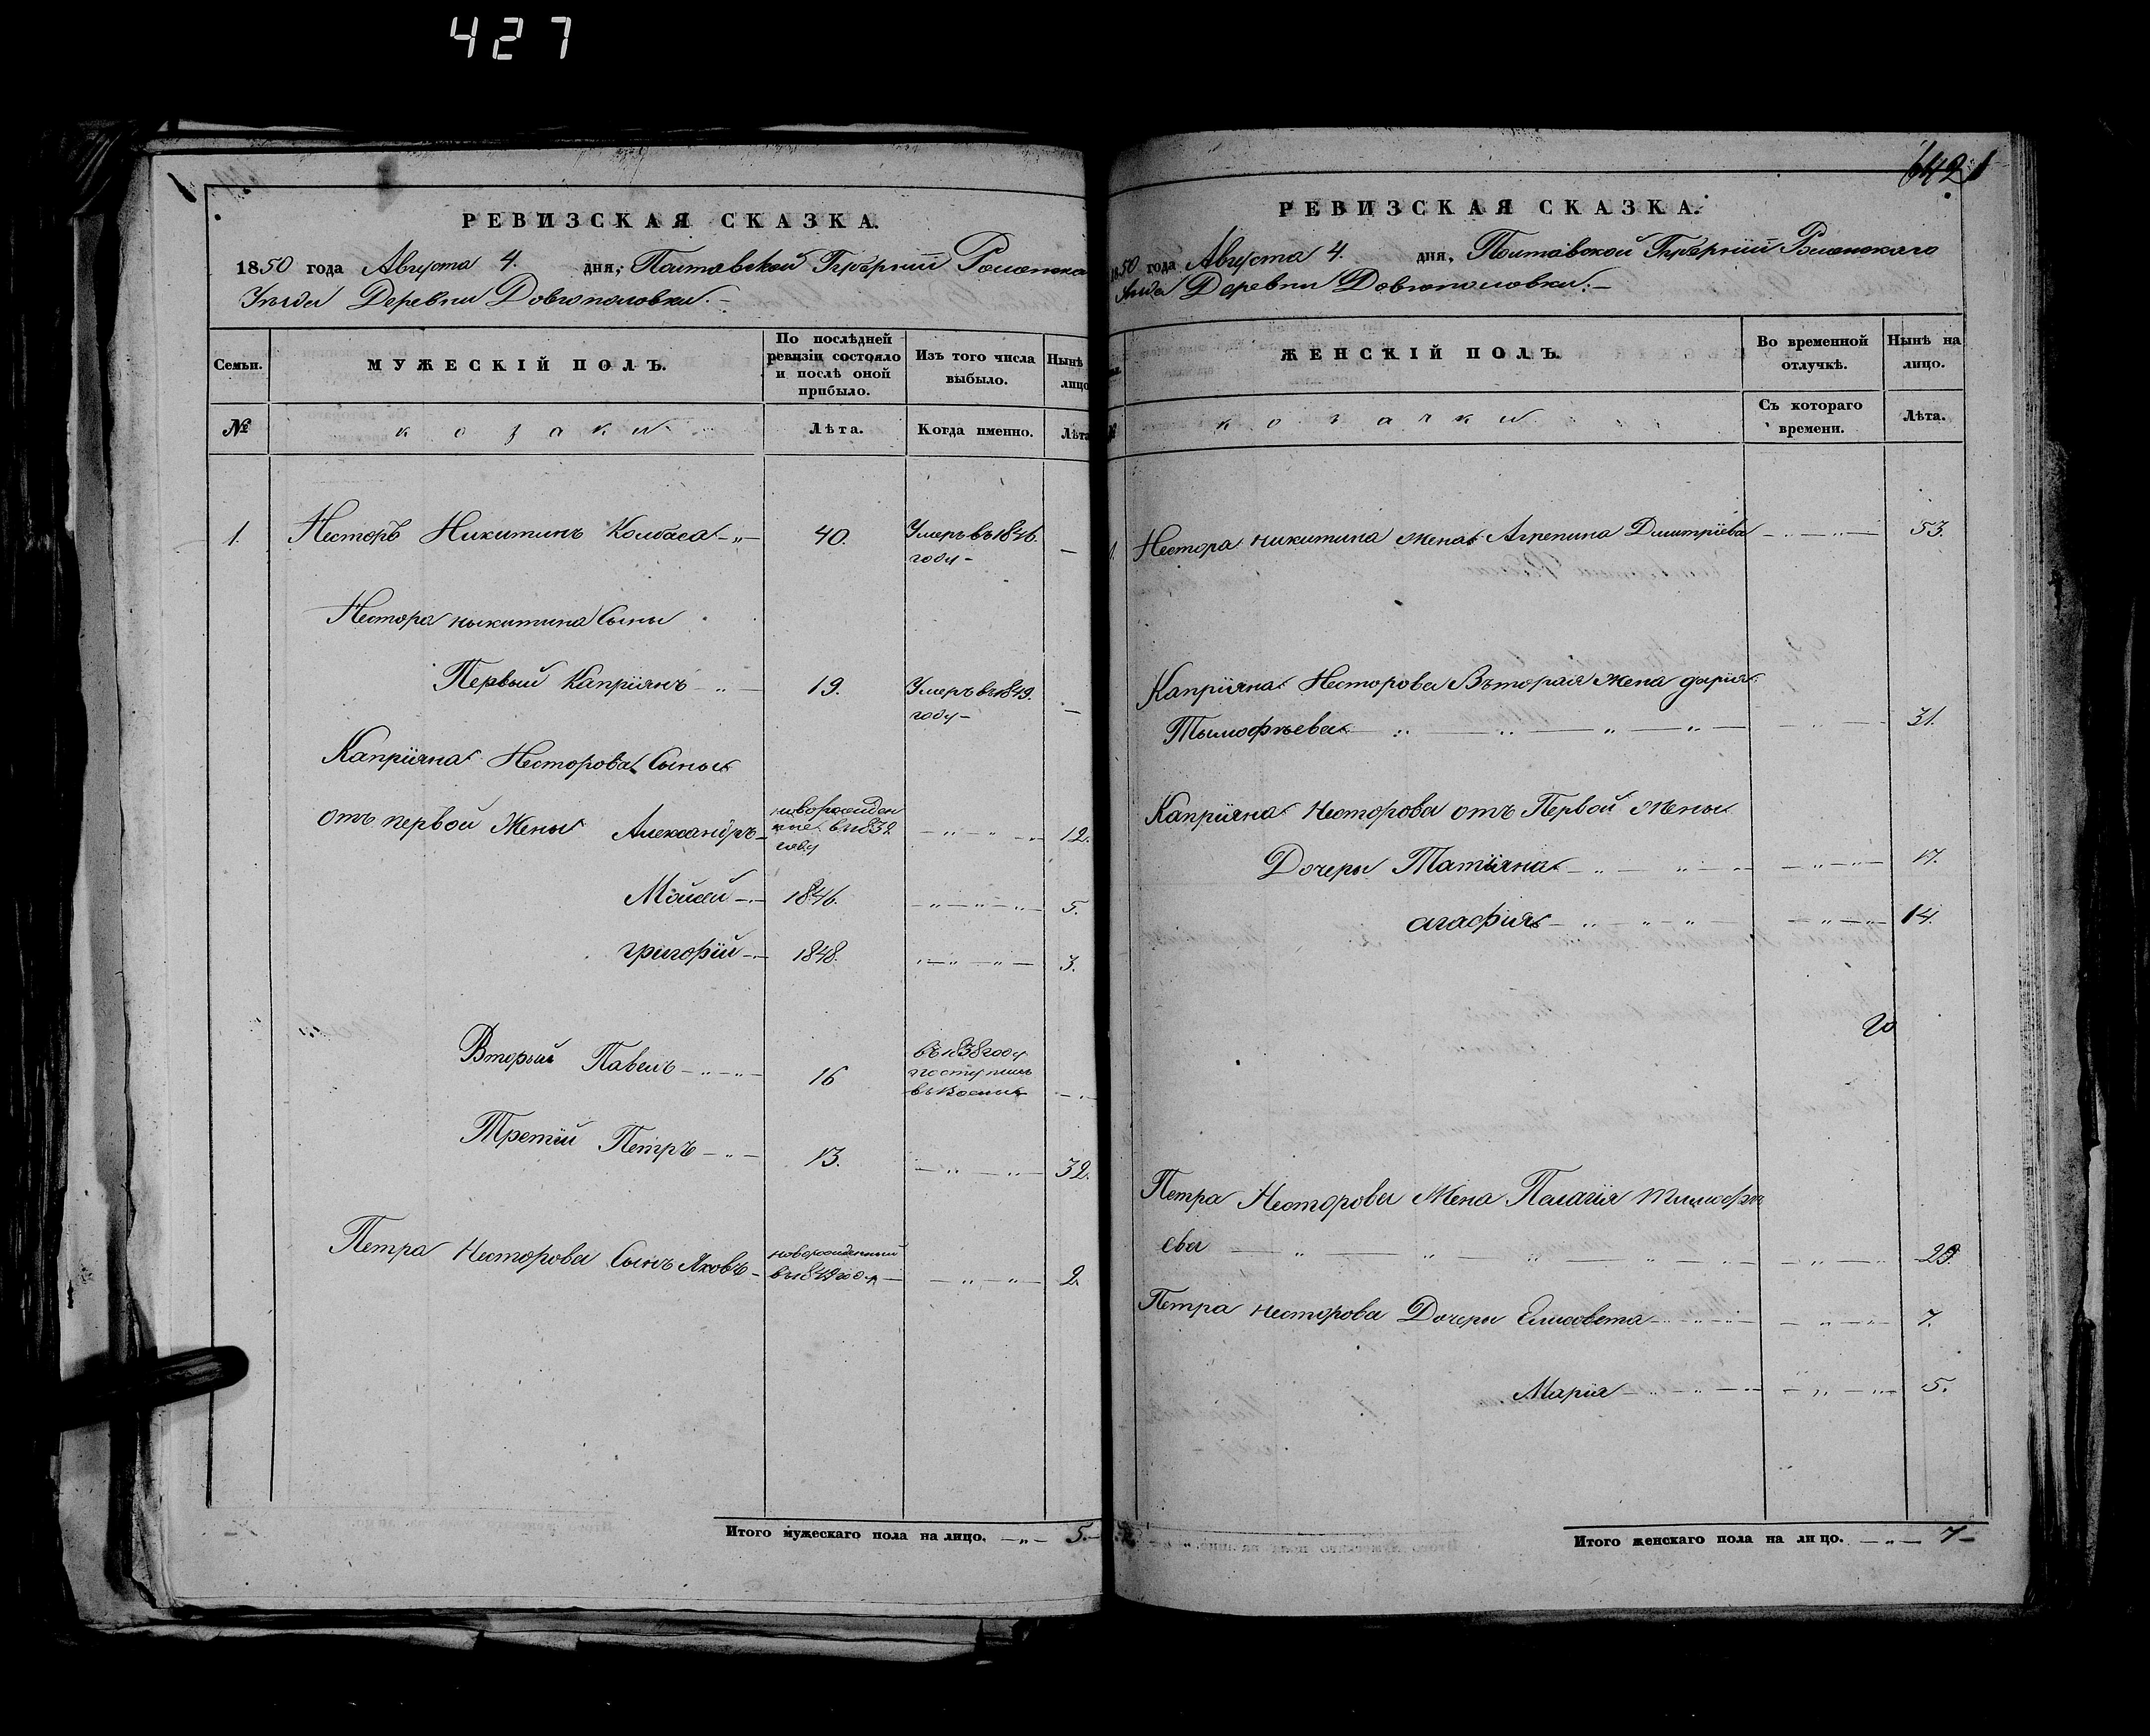 427
РЕВИЗСКАЯ СКАЗКА.
1850 года Августа 4. дня, Полтавской Губернии Роменска
Уезда Деревни Довгополовки.
Семьи.
МУЖЕСКІЙ ПОЛЪ.
По послѣдней ревизіи состояло и послѣ оной прибыло.
Изъ того числа выбыло.
Нынѣ лицо
№
козаки
Лѣта.
Когда именно.
Лѣта
1. Несторъ Никитинъ Колбаса 40. Умеръ въ 1846. году
Нестора никитина Сыны
Первый Каприянъ 19. Умеръ въ 1849. году
Каприяна Несторова Сыны
отъ первой Жены Александръ 12.
Мойсей 1846. 5.
григорій 1848. 3.
Вторый Павелъ 16 въ 1838 году поступилъ
Третій Петръ 13. 32.
Петра Несторова Сынъ Яковъ новорожденный въ 1849 году 2.
Итого мужескаго пола на лицо. 5.
642
РЕВИЗСКАЯ СКАЗКА.
1850 года Августа 4. дня, Полтавской Губерніи Роменскаго
Уезда Деревни Довгополовки.
ЖЕНСКІЙ ПОЛЪ.
Во временной отлучкѣ.
Нынѣ на лицо.
№
козачки
Съ котораго времени.
Лѣта.
1. Нестора никитина жена Агрепина Дмитріева 53.
Каприяна Несторова Въторая жена дария
Тымофѣева 31.
Каприяна Несторова отъ Первой Жены
Дочеры Татіяна 17.
агафия 14.
Петра Несторова Жена Палагія тимофѣ
ева 29.
Петра несторова Дочеры Елисовета 7.
Марія 5.
Итого женскаго пола на лицо. 7